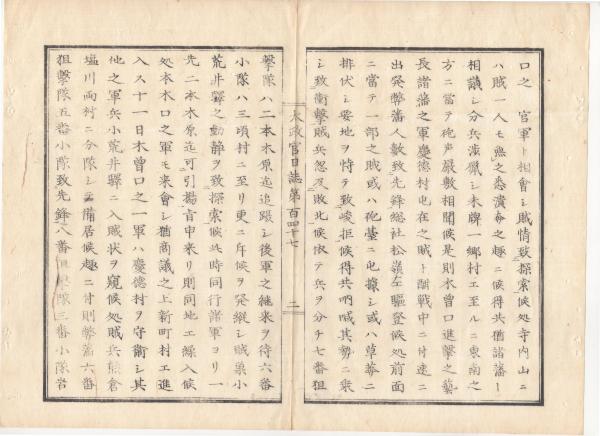 口之 官軍ト相會シ賊情致探索候処寺内山ニ
ハ賊一人モ無之悉潰奔之趣ニ候得共猶諸藩ト
相議シ分兵漁猟シ木牌一郷村エ至ルニ東南之
方ニ當テ砲声厳敷相聞候是則木曽口進撃之藝
長諸藩之軍慶徳村屯在之賊ト酣戰中ニ付速ニ
出発弊藩人数致先鋒総社松嶺左驅登候処前面
ニ當テ一部之賊或ハ砲䑓ニ屯據シ或ハ草莽ニ
排伏シ要地ヲ恃テ致峻拒候得共吶喊其勢ニ乗
シ致衝撃賊兵忽及敗北候依テ兵ヲ分チ七番狙
太政官日誌第百四十七
二
擊隊ハ二本木原迄追躡シ後軍之継来ヲ待六番
小隊ハ三頃村ニ至リ更ニ斥候ヲ発縱シ賊巣小
荒井驛之動静ヲ致探索候此時同行諸軍ヨリ一
先二本木原迄可引揚旨申来リ則同地エ繰入候
処本木口之軍モ来會シ猶商議之上新町村エ進
入ス十一日木曽口之一軍ハ慶徳村ヲ守衛シ其
他之軍兵小荒井驛ニ入賊状ヲ窺候処賊兵熊倉
塩川両村ニ分隊シテ備居候趣ニ付則弊藩六番
狙擊隊五番小隊致先鋒八番狙擊隊三番小隊岩